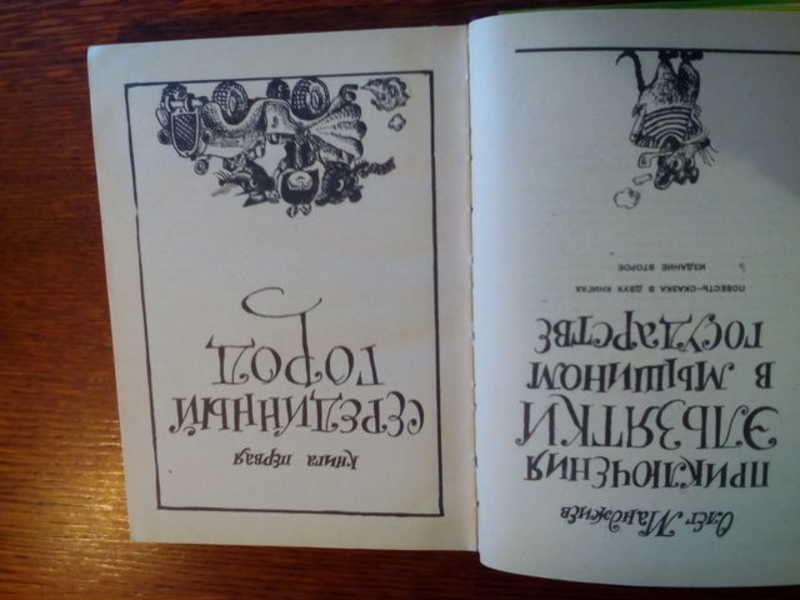 Олег Манджиев
ПРИКЛЮЧЕНИЯ
ЭЛЬЗЯТКИ
В МЫШИНОМ
ГОСУДАРСТВЕ
ПОВЕСТЬ-СКАЗКА В ДВУХ КНИГАХ
ИЗДАНИЕ ВТОРОЕ
Книга первая
СЕРЕДИННЫЙ
ГОРОД